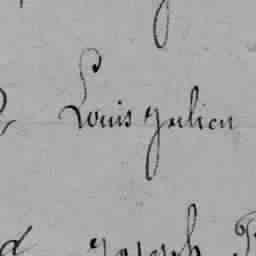 Louis Julien
Joseph